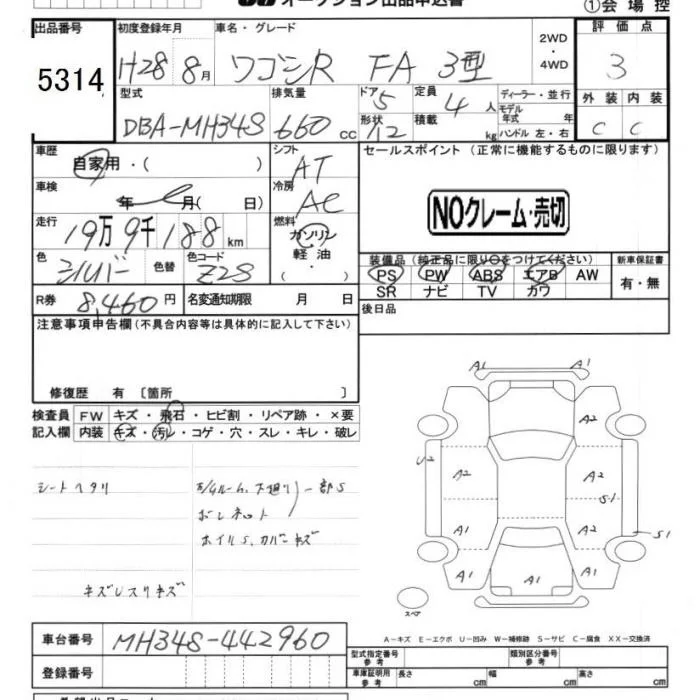 オークション出品申込書
①会場控
出品番号
5314
初度登録年月
H28 8月
車名・グレード
ワゴンR FA 3型
2WD
・
4WD
評価点
3
型式
DBA-MH34S
排気量
660 cc
ドア 5
形状 12
定員 4 人
積載 kg
ディーラー・並行
モデル
年式 年
ハンドル 左・右
外装 内装
C C
車歴
自家用・( )
シフト
AT
セールスポイント(正常に機能するものに限ります)
車検
年 月( 日)
冷房
AC
NOクレーム・売切
走行
19万9千188km
燃料
ガソリン
軽油
・( )
色
シルバー
色替
色コード
Z2S
装備品(純正品に限り○をつけてください)
PS PW ABS エアB AW
SR ナビ TV カワ
新車保証書
有・無
R券 8,460円
名変通知期限 月 日
後日品
注意事項申告欄(不具合内容等は具体的に記入して下さい)
修復歴 有〔箇所 〕
検査員 FW キズ・飛石・ヒビ割・リペア跡・×要
記入欄 内装 キズ・汚レ・コゲ・穴・スレ・キレ・破レ
シートヘタリ
下廻り 一部S
ホイルS、カバーキズ
キズレスリキズ
A1 A1
A2
U2 A2 A2
S1
A1 A2 S1
A1 A1 A1
スペア
A-キズ E-エクボ U-凹み W-補修跡 S-サビ C-腐食 XX-交換済
車台番号 MH34S-442960
登録番号
型式指定番号
参考
類別区分番号
参考
車庫証明用
参考
長さ cm 幅 cm 高さ cm